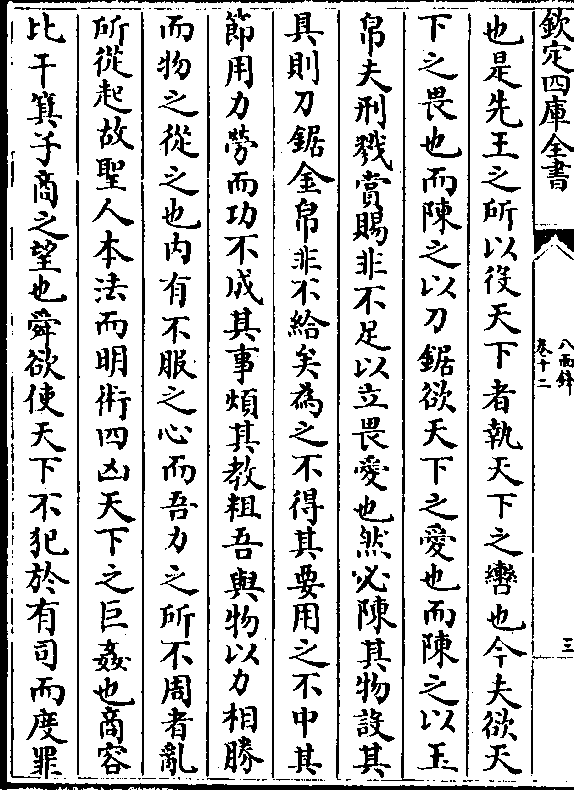 欽定四庫全書
八面鋒
卷十二
三
也是先王之所以役天下者執天下之轡也今夫欲天
下之畏也而陳之以刀鋸欲天下之愛也而陳之以玉
帛夫刑戮賞賜非不足以立畏愛也然必陳其物設其
具則刀鋸金帛非不給矣為之不得其要用之不中其
節用力勞而功不成其事煩其教粗吾與物以力相勝
而物之從之也内有不服之心而吾力之所不周者亂
所從起故聖人本法而明術四凶天下之巨姦也商容
比干箕子商之望也舜欲使天下不犯於有司而度罪